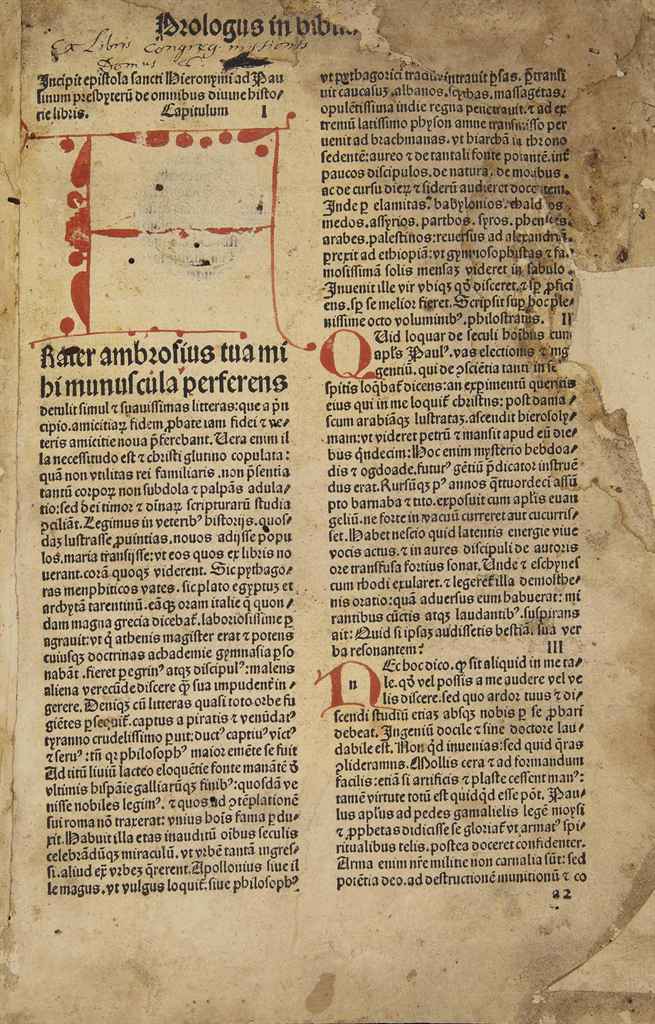 Prologus in bibli
Ex Libris Congreg. missionis
Domus
Incipit epistola sancti Hieronymi ad Pau⸗
linum presbyterū de omnibus diuine histo⸗
rie libris. Capitulum I
F
Rater ambrosius tua mi
hi munuscula perferens
detulit simul ⁊ suauissimas litteras: que a p̄n
cipio.amicitiaꝝ fidem, ꝓbate iam fidei ⁊ ve⸗
teris amicitie noua p̄ferebant. Uera enim il
la necessitudo est ⁊ christi glutino copulata:
quā non vtilitas rei familiaris.non p̄sentia
tantū corpoꝝ non subdola ⁊ palpās adula⸗
tio: sed dei timor ⁊ diuinaꝝ scripturarū studia
ꝯciliāt. Legimus in veteribꝰ historijs.quos⸗
daꝫ lustrasse ꝓuintias.nouos adijsse popu
los.maria transijsse: vt eos quos ex libris no
uerant.corā quoqꝫ viderent. Sic pythago⸗
ras menphiticos vates. sic plato egyptuꝫ et
archytā tarentinū.eāqꝫ oram italie q̄ quon⸗
dam magna grecia dicebat̄.laboriosissime ꝑ
agrauit: vt q̄ athenis magister erat ⁊ potens
cuiusqꝫ doctrinas achademie gymnasia ꝑso
nabāt. fieret peregrinꝰ atqꝫ discipulꝰ: malens
aliena verecūde discere q̄ꝫ sua impudent̄ in⸗
gerere. Deniqꝫ cū litteras quasi toto orbe fu
giētes ꝑsequit̄. captus a piratis ⁊ venūdatꝰ
tyranno crudelissimo paruit: ductꝰ captiuꝰ victꝰ
⁊ seruꝰ: tn̄ qꝛ philosophꝰ maior emēte se fuit
Ad titū liuiū lacteo eloquētie fonte manātē ð
vltimis hispāie galliarūqꝫ finibꝰ: quosdā ve
nisse nobiles legimꝰ. ⁊ quos ad ꝯtēplationē
sui roma nō traxerat: vnius hoīs fama ꝑdu⸗
xit. Habuit illa etas inauditū oībus seculis
celebrādūqꝫ miraculū. vt vrbē tantā ingres⸗
si.aliud ex̄ vrbeꝫ q̄rerent. Apollonius siue il
le magus.vt vulgus loquit̄. siue philosophꝰ
vt pythagorici tradūt: intrauit ꝑsas. p̄transi
uit caucasuꝫ.albanos.scythas.massagetas.
opulētissima indie regna penetrauit. ⁊ ad ex
tremū latissimo physon amne transmisso per
uenit ad brachmanas. vt hiarchā in throno
sedentē: aureo ⁊ de tantali fonte potantē.int̄
paucos discipulos.de natura.de moribus.
ac de cursu dierꝝ ⁊ siderū audiret docentem.
Inde ꝑ elamitas.babylonios.chaldeos.
medos.assyrios.parthos.syros.phenices.
arabes.palestinos: reuersus ad alexandriā.
ꝑrexit ad ethiopiā: vt gymnosophistas ⁊ fa⸗
mosissimā solis mensaꝫ videret in sabulo.
Inuenit ille vir vbiqꝫ qð disceret. ⁊ sꝑ ꝓfici
ens.sꝑ se melior fieret. Scripsit suꝑ hoc ple⸗
nissime octo voluminibꝰ.philostratus. II
QUid loquar de seculi hoībus cum
apl̄s Paulꝰ.vas electionis ⁊ mgr̄
gentiū.qui de ꝯsciētia tanti in se
spitis loq̄bat̄ dicens: an exꝑimentū queritis
eius qui in me loquit̄ christus: post dama⸗
scum arabiāqꝫ lustrataꝫ.ascendit hierosoly⸗
mam: vt videret petrū ⁊ mansit apud eū die⸗
bus q̄ndecim: Hoc enim mysterio hebdoa⸗
dis ⁊ ogdoade.futurꝰ gētiū p̄dicator instruē
dus erat. Rursūqꝫ pꝰ annos q̄ttuordeci assū
pto barnaba ⁊ tito.exposuit cum apl̄is euan
geliū.ne forte in vacuū curreret aut cucurris⸗
set. Habet nescio quid latentis energie viue
vocis actus. ⁊ in aures discipuli de autoris
ore transfusa fortius sonat. Unde ⁊ eschynes
cum rhodi exularet. ⁊ legeret̄ illa demosthe⸗
nis oratio: quā aduersus eum habuerat: mi
rantibus cūctis atqꝫ laudantibꝰ. suspirans
ait: Quid si ipsaꝫ audissetis bestiā. sua ver
ba resonantem? III
NEc hoc dico. ꝙ sit aliquid in me ta⸗
le.qð vel possis a me audire vel ve
lis discere.sed quo ardor tuus ⁊ di⸗
scendi studiū etiaꝫ absqꝫ nobis ꝑ se ꝓbari
debeat. Ingeniū docile ⁊ sine doctore lau⸗
dabile est. Non qð inuenias: sed quid q̄ras
ꝯsideramus. Mollis cera ⁊ ad formandum
facilis: etiā si artificis ⁊ plaste cessent manꝰ:
tamē virtute totū est quidqd̄ esse pōt. Pau⸗
lus apl̄us ad pedes gamalielis legē moysi
⁊ ꝓphetas didicisse se gloriat̄ vt armatꝰ spi⸗
ritualibus telis.postea doceret confidenter.
Arma enim nr̄e militie non carnalia sūt: sed
potētia deo.ad destructionē munitionū ⁊ co
a2